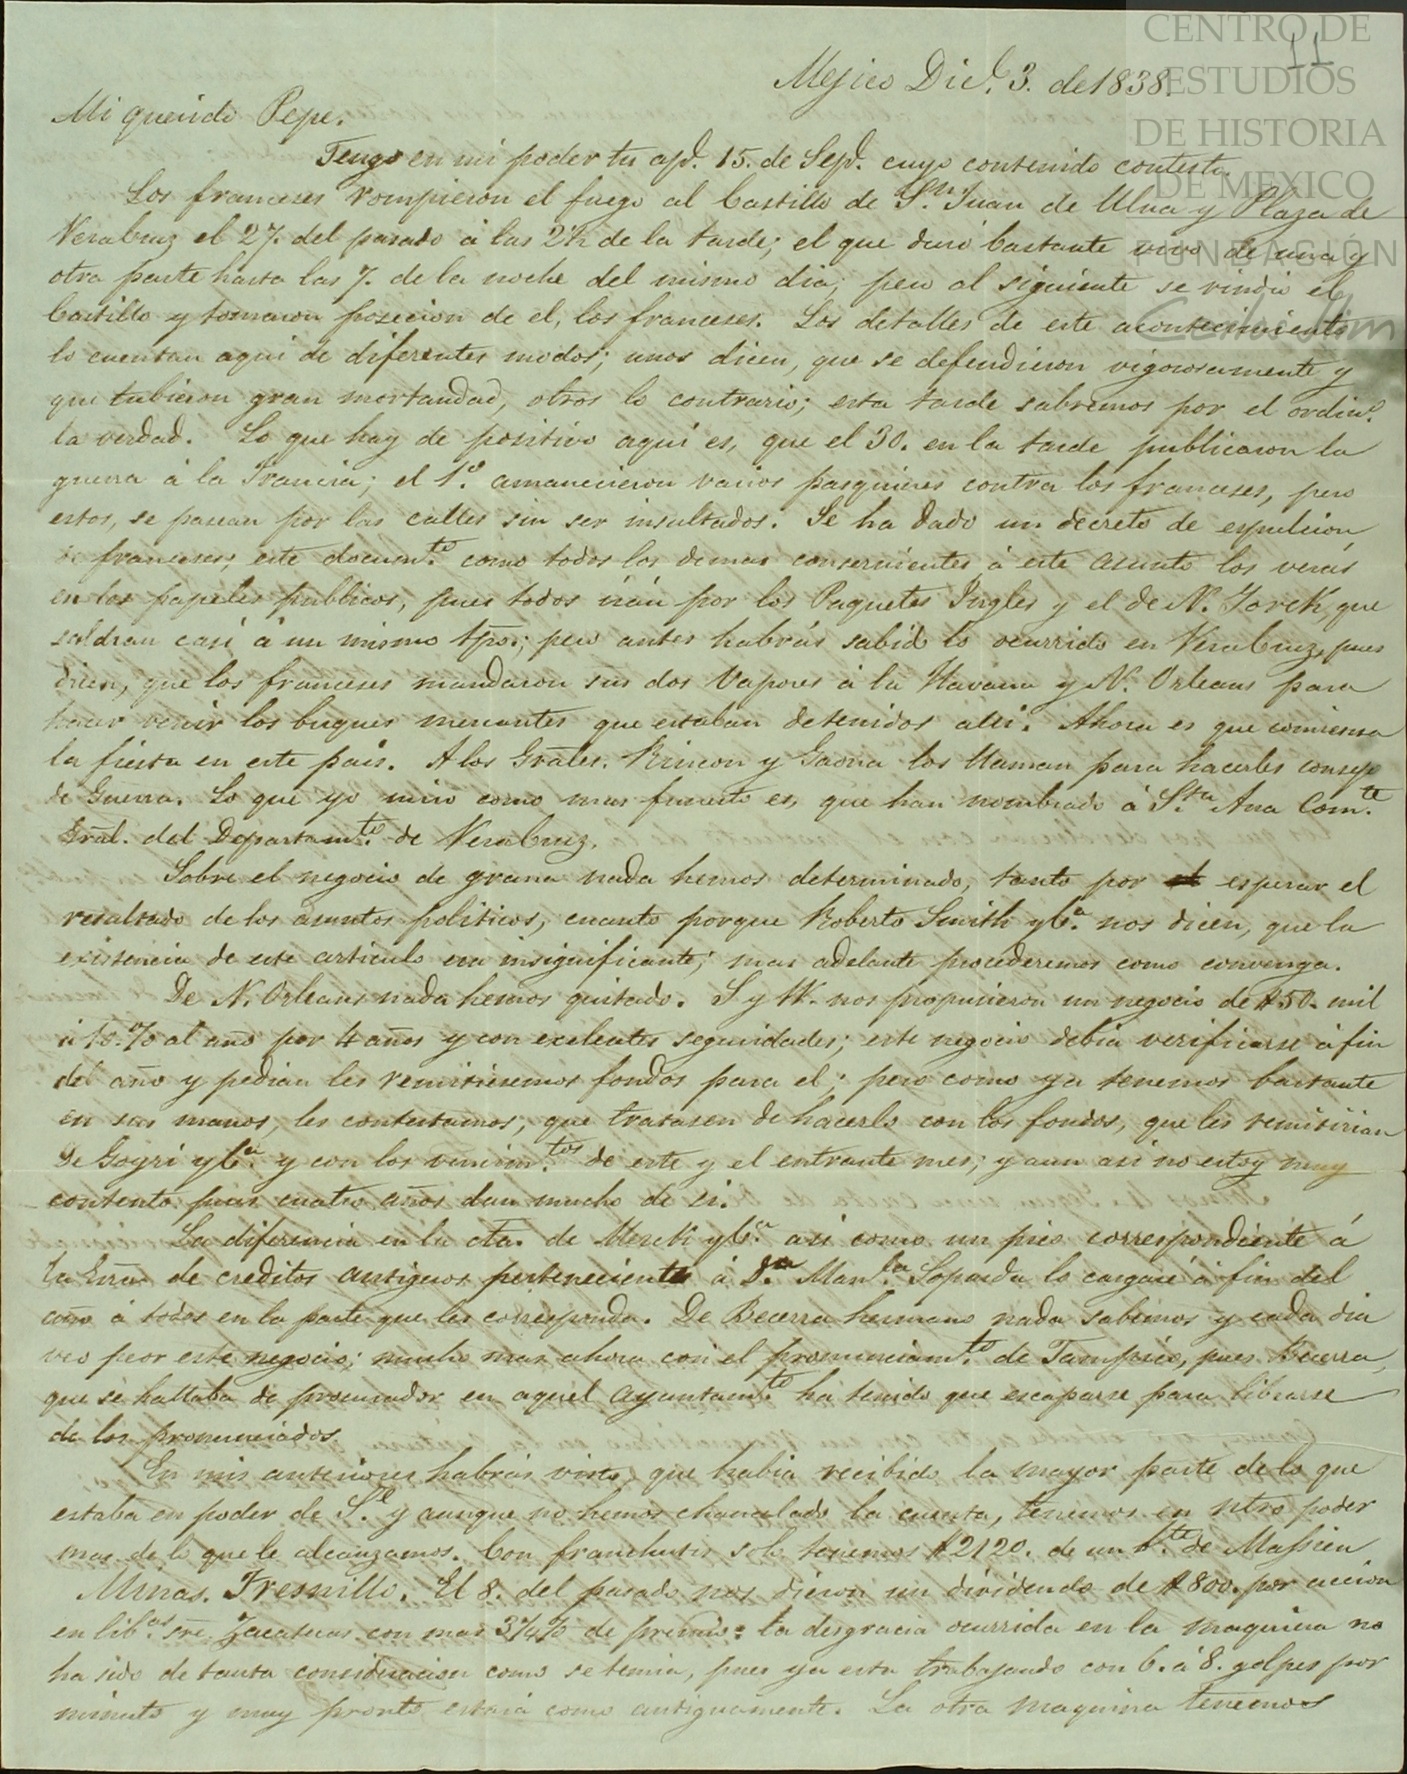 CENTRO DE
ESTUDIOS
DE HISTORIA
DE MEXICO
FUNDACIÓN
Carlos Slim
11
Mejico Dic.e 3. de 1838.
Mi querido Pepe.
Tengo en mi poder tu apd. 15. de Sepe. cuyo contenido contesto.
Los franceses rompieron el fuego al Castillo de Sn. Juan de Ulua y Plaza de
VeraCruz el 27. del pasado á las 2½ de la tarde; el que duró bastante vivo de una y
otra parte hasta las 7. de la noche del mismo dia; pero al siguiente se rindio el
Castillo y tomaron posecion de el, los franceses. Los detalles de este acontecimiento
lo cuentan aqui de diferentes modos; unos dicen, que se defendieron vigorosamente y
que tubieron gran mortandad, otros lo contrario; esta tarde sabremos por el ordino.
la verdad. Lo que hay de positivo aqui es, que el 30. en la tarde publicaron la
guerra á la Francia; el 1º. amanecieron varios pasquines contra los franceses, pero
estos, se pasean por las calles sin ser insultados. Se ha dado un decreto de espulcion
de franceses; este documto. como todos los demas consernientes á este asunto los verás
en los papeles publicos, pues todos irán por los Paquetes Ingles y el de N. Yorck, que
saldran casi á un mismo tpo.; pero antes habrás sabido lo ocurrido en VeraCruz, pues
dicen, que los franceses mandaron sus dos Vapores á la Havana y N. Orleans para
hacer venir los buques mercantes que estaban detenidos alli. Ahora es que comiensa
la fiesta en este pais. A los Grales. Rincon y Gaona los llaman para hacerles consejo
de Guerra. Lo que yo miro como mas funesto es, que han nombrado á Sta. Ana Comte.
Gral. del Departamto. de VeraCruz.
Sobre el negocio de grana nada hemos determinado, tanto por esperar el
resultado de los asuntos politicos, cuanto porque Roberto Smith yCa. nos dicen, que la
existencia de este articulo era insignificante; mas adelante procederemos como convenga.
De N. Orleans nada hemos quitado. S. y W. nos propusieron un negocio de $50. mil
á 10.% al año por 4 años y con exelentes seguridades; este negocio debia verificarse á fin
del año y pedian les remitiesemos fondos para el; pero como ya tenemos bastante
en sus manos, les contestamos, que tratasen de hacerlo con los fondos, que les remitirian
De Goyri yCa. y con los vencimtos. de este y el entrante mes; y aun asi no estoy muy
contento pues cuatro años dan mucho de si.
La diferencia en la cta. de Merck yCa. asi como un pico correspondiente á
la de creditos antiguos pertenecientes á Da. Manla. lo cargaré á fin del
año á todos en la parte que les corresponda. De Becerra hermano nada sabemos y cada dia
veo peor este negocio; mucho mas ahora con el pronunciamto. de Tampico, pues Becerra,
que se hallaba de procurador en aquel Ayuntamto. ha tenido que escaparse para librarse
de los pronunciados.
En mis anteriores habrás visto, que habia recibido la mayor parte de lo que
estaba en poder de S.l y aunque no hemos chancelado la cuenta, tenemos en ntro poder
mas de lo que le alcanzamos. Con franchutes solo tenemos $2120. de un Pte. de Massieu
Minas. Fresnillo. El 8. del pasado nos dieron un dividendo de $800. por accion
en libras. sre. Zacatecas con mas 3¼% de premio: la desgracia ocurrida en la maquina no
ha sido de tanta consideracion como se temia, pues ya esta trabajando con 6. á 8. golpes por
minuto y muy pronto estará como antiguamente. La otra maquina tenemos